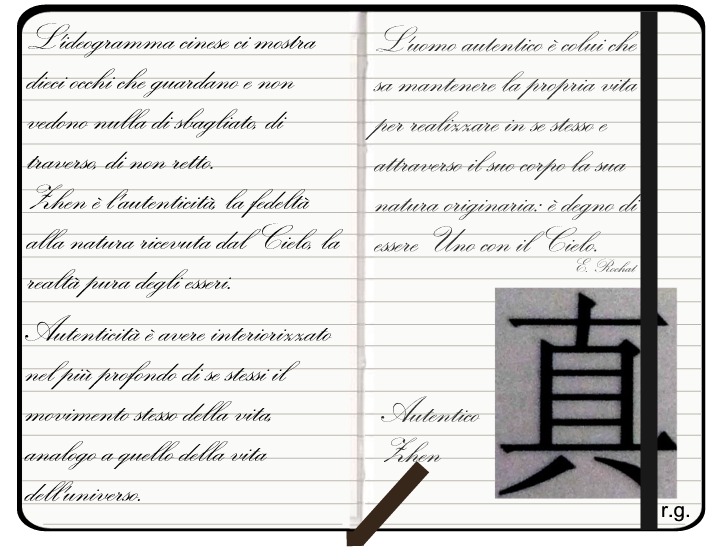 L'ideogramma cinese ci mostra
dieci occhi che guardano e non
vedono nulla di sbagliato, di
traverso, di non retto.
Zhen è l'autenticità, la fedeltà
alla natura ricevuta dal Cielo, la
realtà pura degli esseri.
Autenticità è avere interiorizzato
nel più profondo di se stessi il
movimento stesso della vita,
analogo a quello della vita
dell'universo.
L'uomo autentico è colui che
sa mantenere la propria vita
per realizzare in se stesso e
attraverso il suo corpo la sua
natura originaria: è degno di
essere Uno con il Cielo.
E. Rochat
Autentico
Zhen
真
r.g.